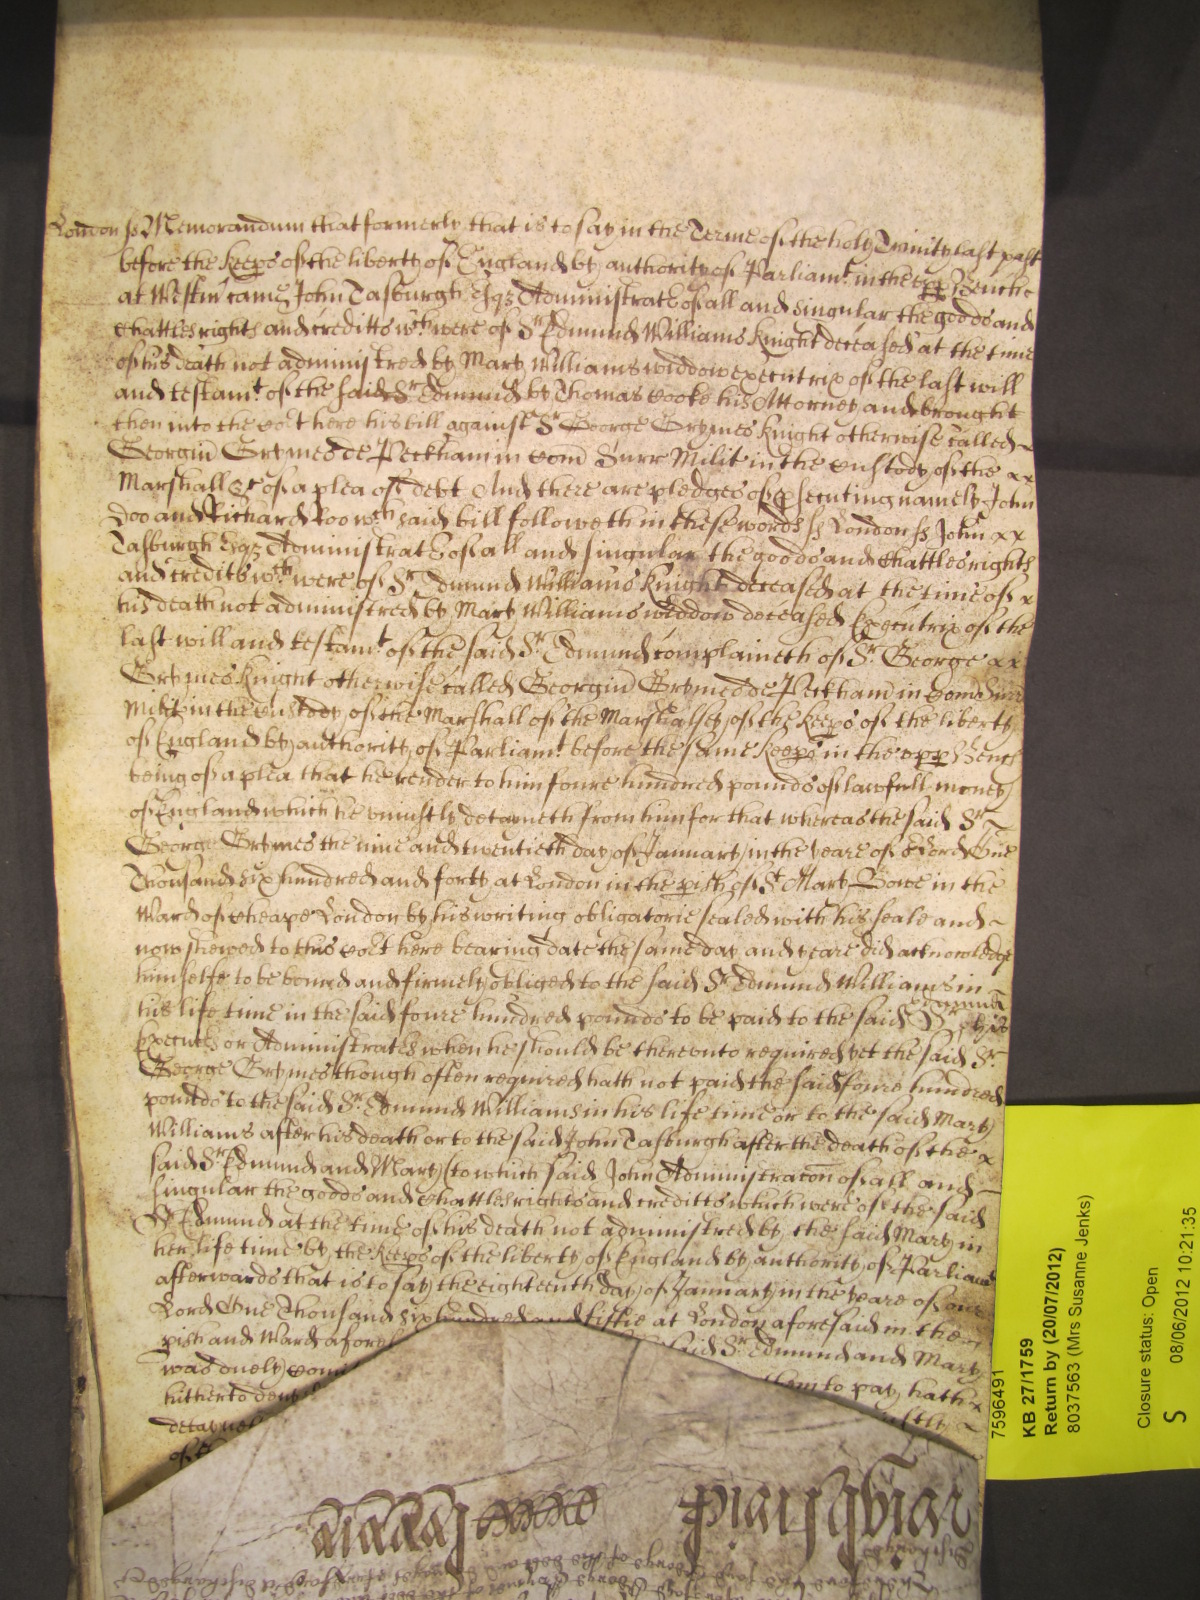 London ss Memorandum that formerly that is to say in the Terme of the holy Trinity last past
before the keeps of the liberty of England by authority of Parliamt in the upp Benche
at Westmr came John Tasburgh Esqz Administrator of all and singular the goods and
Chattles rights and creditts wch were of Sr Edmund Williams knight deceased at the time
of his death not administred by Mary Williams widdow executrix of the last will
and testamt of the said Sr Edmund by Thomas Cooke his Attorney and brought
then into the Cort here his bill against Sr George Grymes knight otherwise called
Georgiu Grymes de Peckham in Com Surr Milit in the Custody of the xx
Marshall &c of a plea of debt And there are pledges of psecuting namely John
Doo and Richard Roo wch said bill followeth in these words ss London ss John xx
Tasburgh Esqz Administrator of all and singular the goods and Chattles rights
and credits wch were of Sr Edmund Williams knight deceased at the time of x
his death not administred by Mary Williams widdow deceased Executrix of the
last will and testamt of the said Sr Edmund complaineth of Sr George xx
Grymes knight otherwise called Georgiu Grymes de Peckham in Com Surr
Milit in the Custody of the Marshall of the Marshalsey of the keeps of the liberty
of England by authority of Parliamt before the same keeps in the upp Bench
being of a plea that he render to him foure hundred pounds of lawfull money
of England which he uniustly detayneth from him for that whereas the said Sr
George Grymes the nine and twentieth day of January in the yeare of or Lord One
Thousand six hundred and forty at London in the pish of St Mary Bowe in the
Ward of Cheape London by his writing obligatorie sealed with his seale and
now shewed to this Cort here bearing date the same day and yeare did acknowledge
himselfe to be bound and firmely obliged to the said Sr Edmund Williams in
his life time in the said foure hundred pounds to be paid to the said Sr Edmund his
Executrs or Administrators when he should be thereunto required yet the said Sr
George Grymes though often required hath not paid the said foure hundred
pounds to the said Sr Edmund Williams in his life time or to the said Mary
Williams after his death or to the said John Tasburgh after the death of the x
said Sr Edmund and Mary (to which said John Administracon of all and
singular the goods and Chattles rights and creditts which were of the said
Sr Edmund at the time of his death not administred by the said Mary in
her life time by the keeps of the liberty of England by authority of Parliamt
afterwards that is to say the eighteenth day of January in the yeare of our
Lord One Thousand six hundred and fiftie at London aforesaid in the
pish and Ward afores said Sr Edmund and Mary
was duely Com them to pay hath x
hitherto deny
detaynet
of
7596491
KB 27/1759
Return by (20/07/2012)
8037563 (Mrs Susanne Jenks)
Closure status: Open
S
08/06/2012 10:21:35